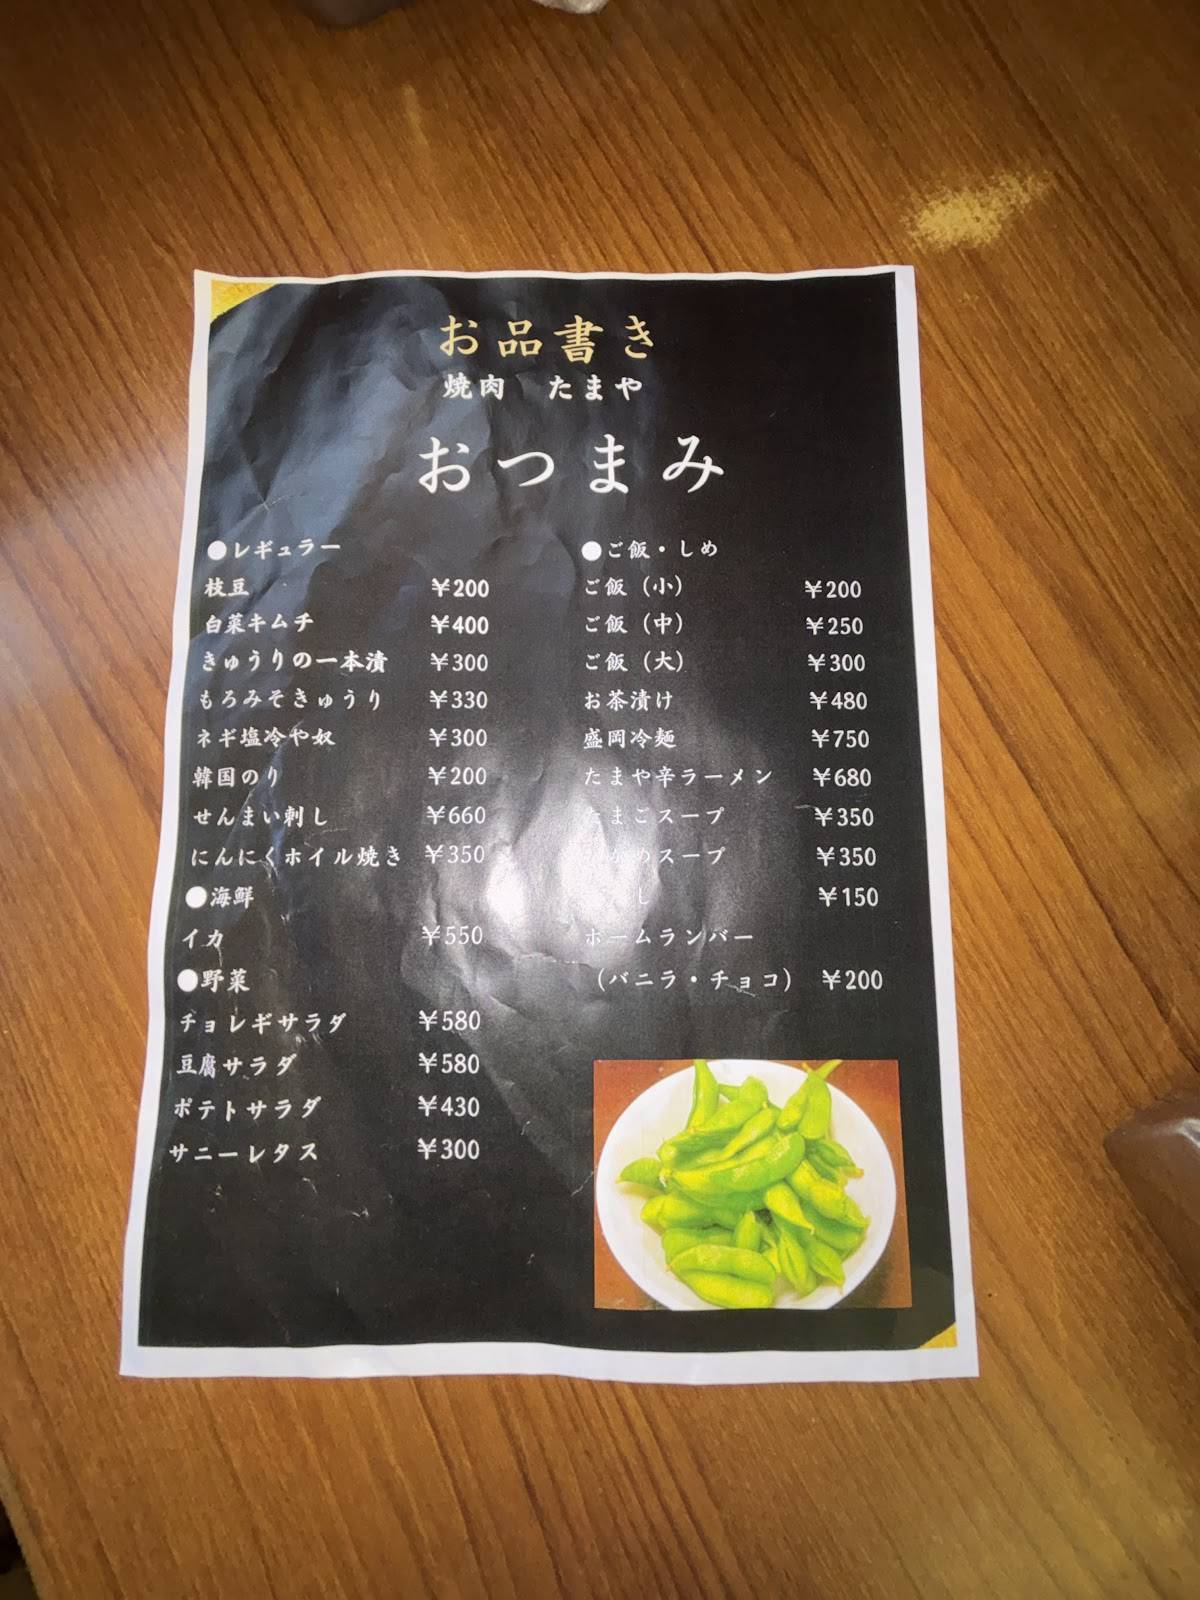 お品書き
焼肉 たまや
おつまみ
●レギュラー
枝豆 ¥200
白菜キムチ ¥400
きゅうりの一本漬 ¥300
もろみそきゅうり ¥330
ネギ塩冷や奴 ¥300
韓国のり ¥200
せんまい刺し ¥660
にんにくホイル焼き ¥350
●海鮮
イカ ¥550
●野菜
チョレギサラダ ¥580
豆腐サラダ ¥580
ポテトサラダ ¥430
サニーレタス ¥300
●ご飯・しめ
ご飯（小） ¥200
ご飯（中） ¥250
ご飯（大） ¥300
お茶漬け ¥480
盛岡冷麺 ¥750
たまや辛ラーメン ¥680
たまごスープ ¥350
わかめスープ ¥350
¥150
ホームランバー
（バニラ・チョコ） ¥200